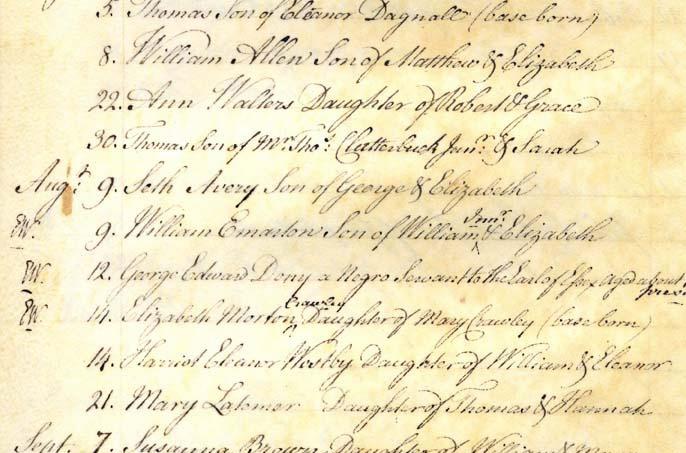 5. Thomas Son of Eleanor Dagnall (base born)
8. William Allen Son of Matthew & Elizabeth
22. Ann Walters Daughter of Robert & Grace
30. Thomas Son of Mr. Thos: Clutterbuck Junr. & Sarah
Augt. 9. Seth Avery Son of George & Elizabeth
9. William Emarton Son of William Junr. & Elizabeth
12. George Edward Dony a Negro Servant to the Earl of Essex aged about
14. Elizabeth Morton Crawley Daughter of Mary Crawley (base born)
14. Harriot Eleanor Westby Daughter of William & Eleanor
21. Mary Latemer Daughter of Thomas & Hannah
Sept. 7. Susanna Brown Daughter of William &